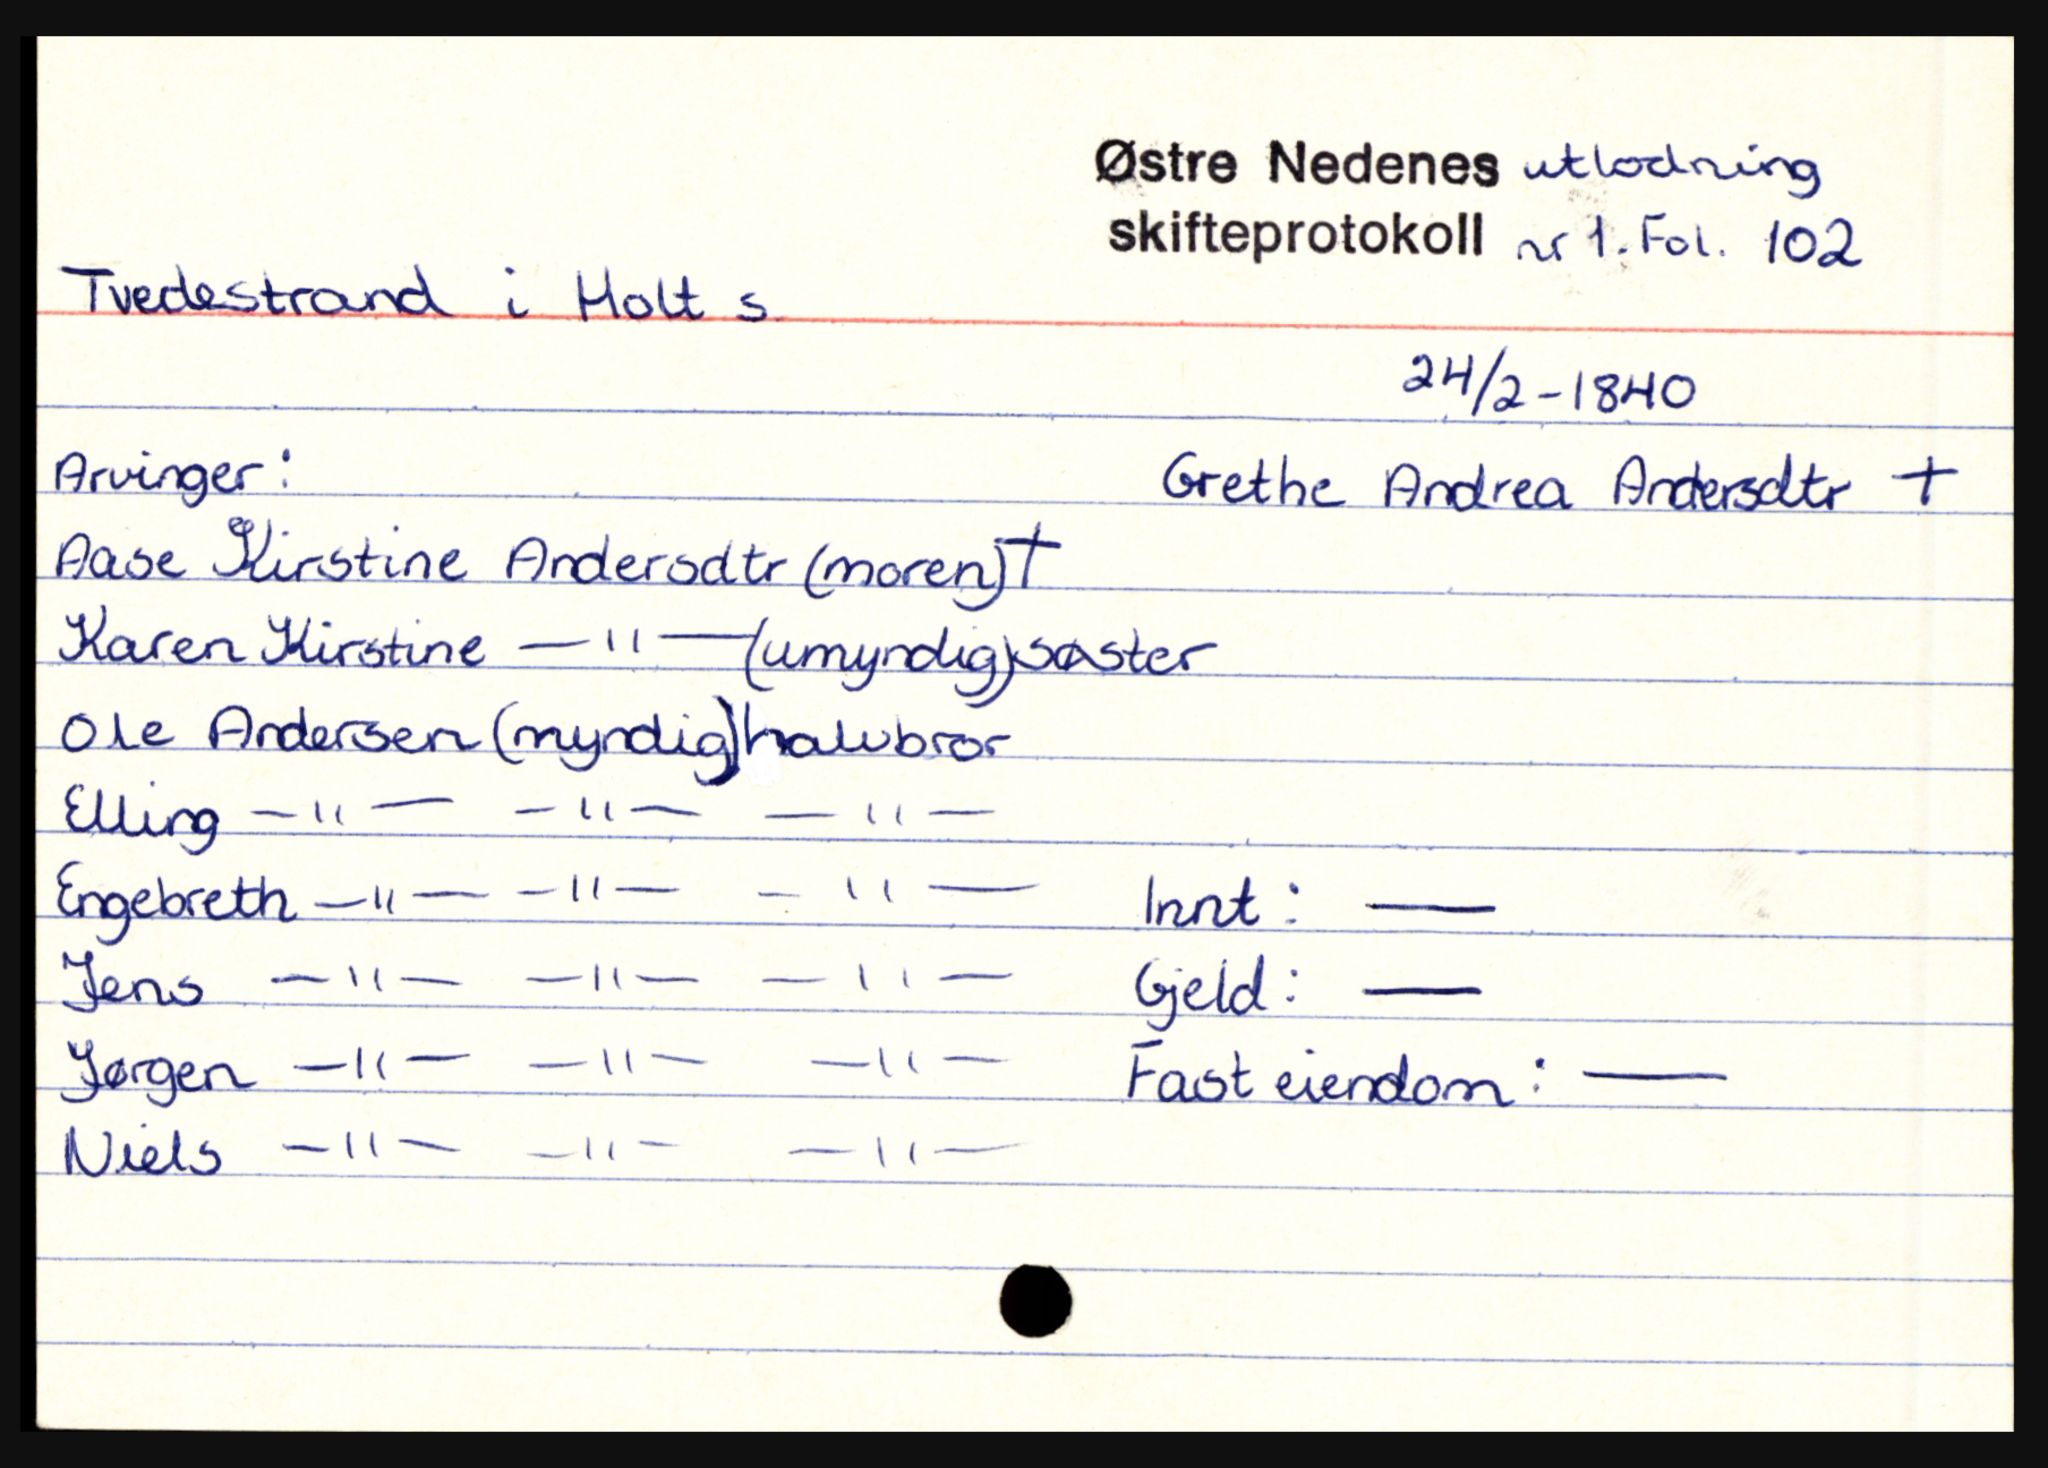 Østre Nedenes utlodning
skifteprotokoll nr 1. Fol. 102
Tvedestrand i Holt s.
24/2-1840
Arvinger:
Grethe Andrea Andersdtr +
Aase Kirstine Andersdtr (moren) +
Karen Kirstine —"— (umyndig) søster
Ole Andersen (myndig) halvbror
Elling —"— —"— —"—
Engebreth —"— —"— —"—
Innt: —
Jens —"— —"— —"—
Gjeld: —
Jørgen —"— —"— —"—
Fast eiendom: —
Niels —"— —"— —"—